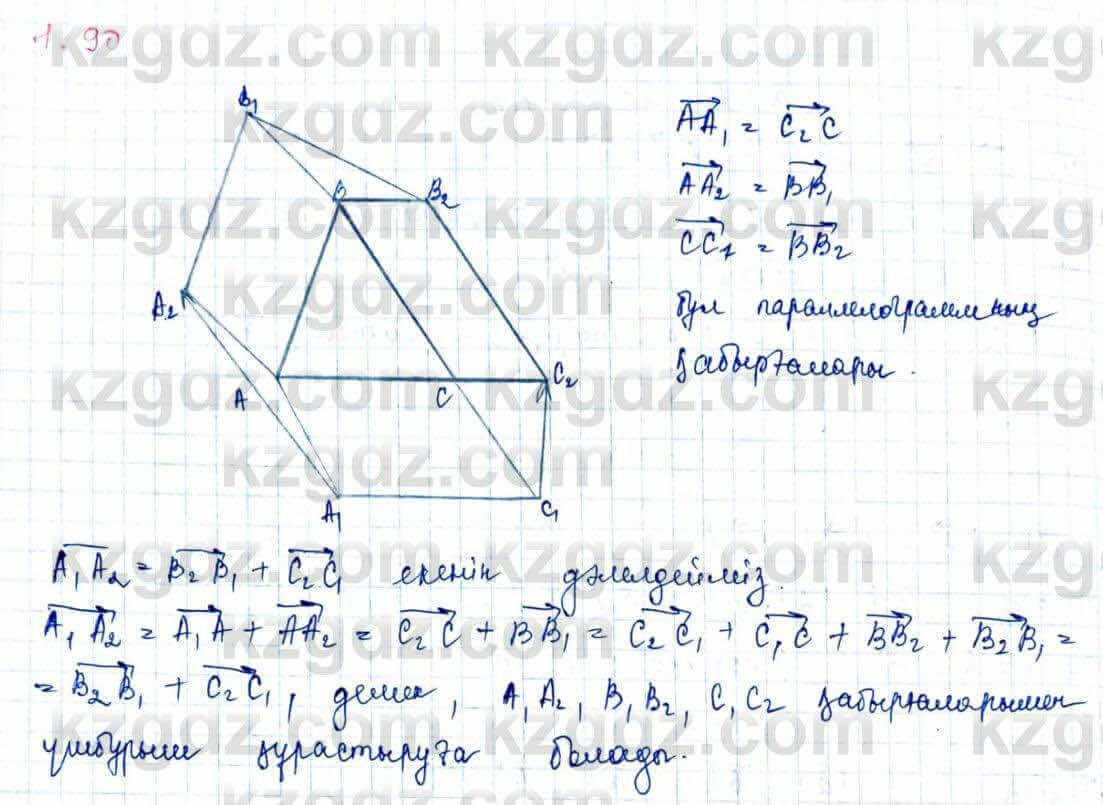 1.90
B₁
B
B₂
A₂
A
C
C₂
A₁
C₁
AA₁ = C₂C
AA₂ = BB₁
CC₁ = BB₂
бұл параллелограммның
қабырғалары.
A₁A₂ = B₂B₁ + C₂C₁ екенін дәлелдейміз.
A₁A₂ = A₁A + AA₂ = C₂C + BB₁ = C₂C₁ + C₁C + BB₂ + B₂B₁ =
= B₂B₁ + C₂C₁, демек, A₁A₂, B₁B₂, C₁C₂ қабырғаларымен
үшбұрыш құрастыруға болады.
kzgdz.com